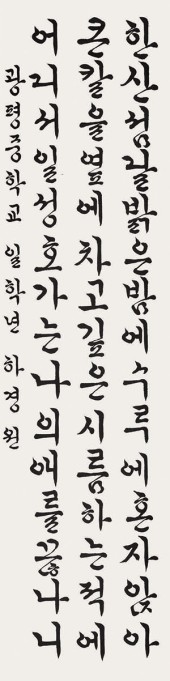 한산섬달밝은밤에수루에혼자앉아
큰칼을옆에차고깊은시름하는적에
어디서일성호가는나의애를끊나니
광평중학교 일학년 하경원